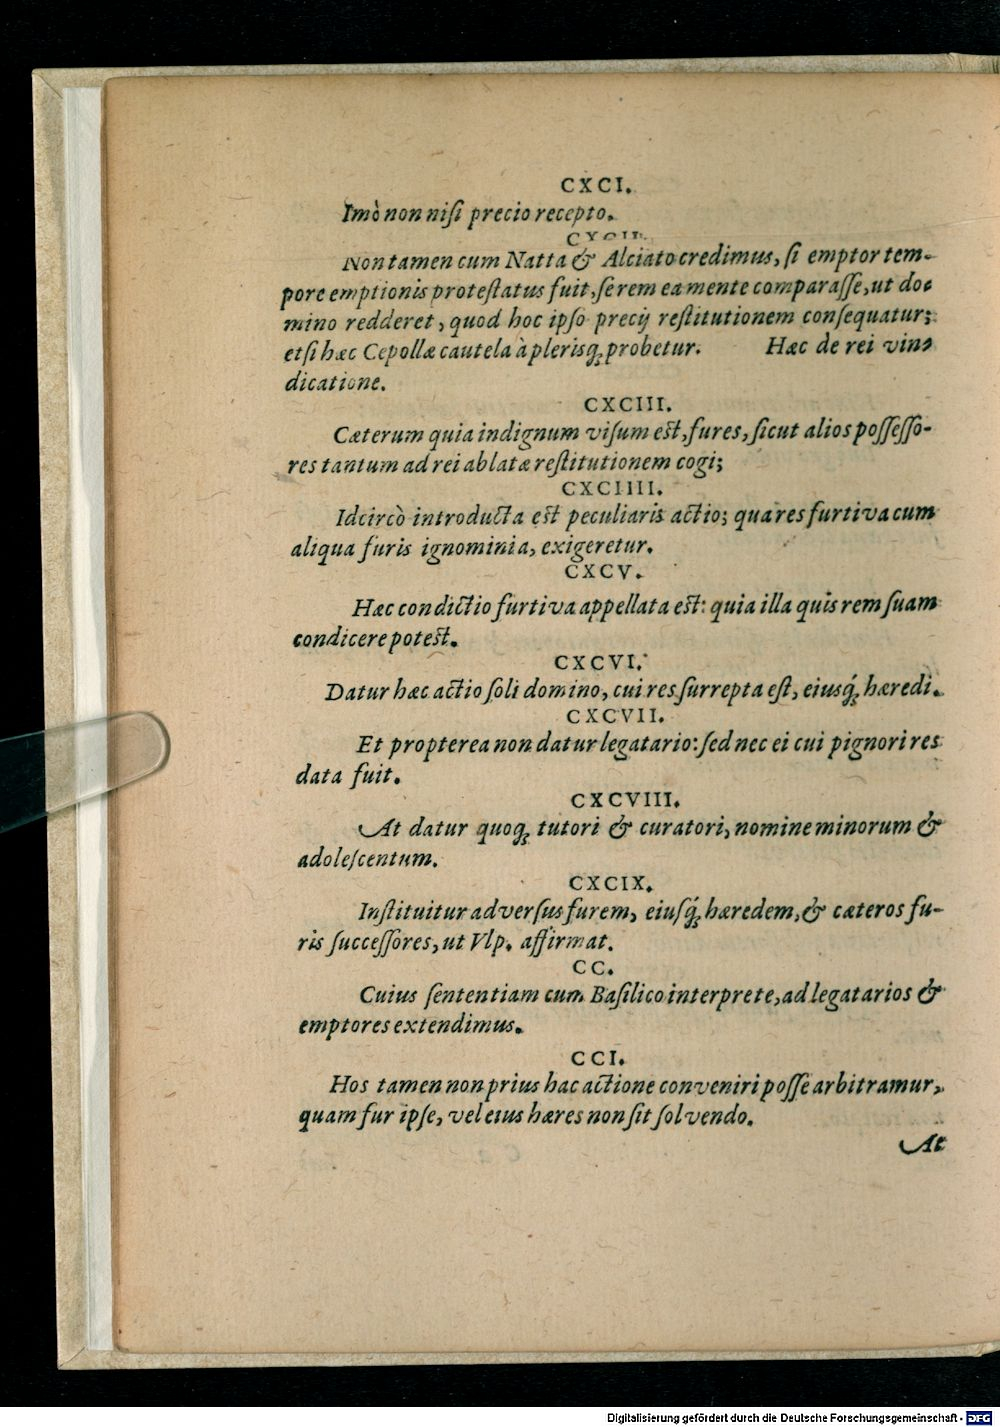 CXCI.
Imò non nisi precio recepto.
CXCII.
Non tamen cum Natta & Alciato credimus, si emptor tem-
pore emptionis protestatus fuit, se rem ea mente comparasse, ut do-
mino redderet, quod hoc ipso precij restitutionem consequatur;
etsi hæc Cepollæ cautela à plerisq; probetur. Hæc de rei vin-
dicatione.
CXCIII.
Cæterum quia indignum visum est, fures, sicut alios possesso-
res tantum ad rei ablatæ restitutionem cogi;
CXCIIII.
Idcircò introducta est peculiaris actio; qua res furtiva cum
aliqua furis ignominia, exigeretur.
CXCV.
Hæc condictio furtiva appellata est: quia illa quis rem suam
condicere potest.
CXCVI.
Datur hæc actio soli domino, cui res surrepta est, eiusq́; hæredi.
CXCVII.
Et propterea non datur legatario: sed nec ei cui pignori res
data fuit.
CXCVIII.
At datur quoq; tutori & curatori, nomine minorum &
adolescentum.
CXCIX.
Instituitur adversus furem, eiusq́; hæredem, & cæteros fu-
ris successores, ut Vlp. affirmat.
CC.
Cuius sententiam cum Basilico interprete, ad legatarios &
emptores extendimus.
CCI.
Hos tamen non prius hac actione conveniri posse arbitramur,
quam fur ipse, vel eius hæres non sit solvendo.
At
Digitalisierung gefördert durch die Deutsche Forschungsgemeinschaft - DFG